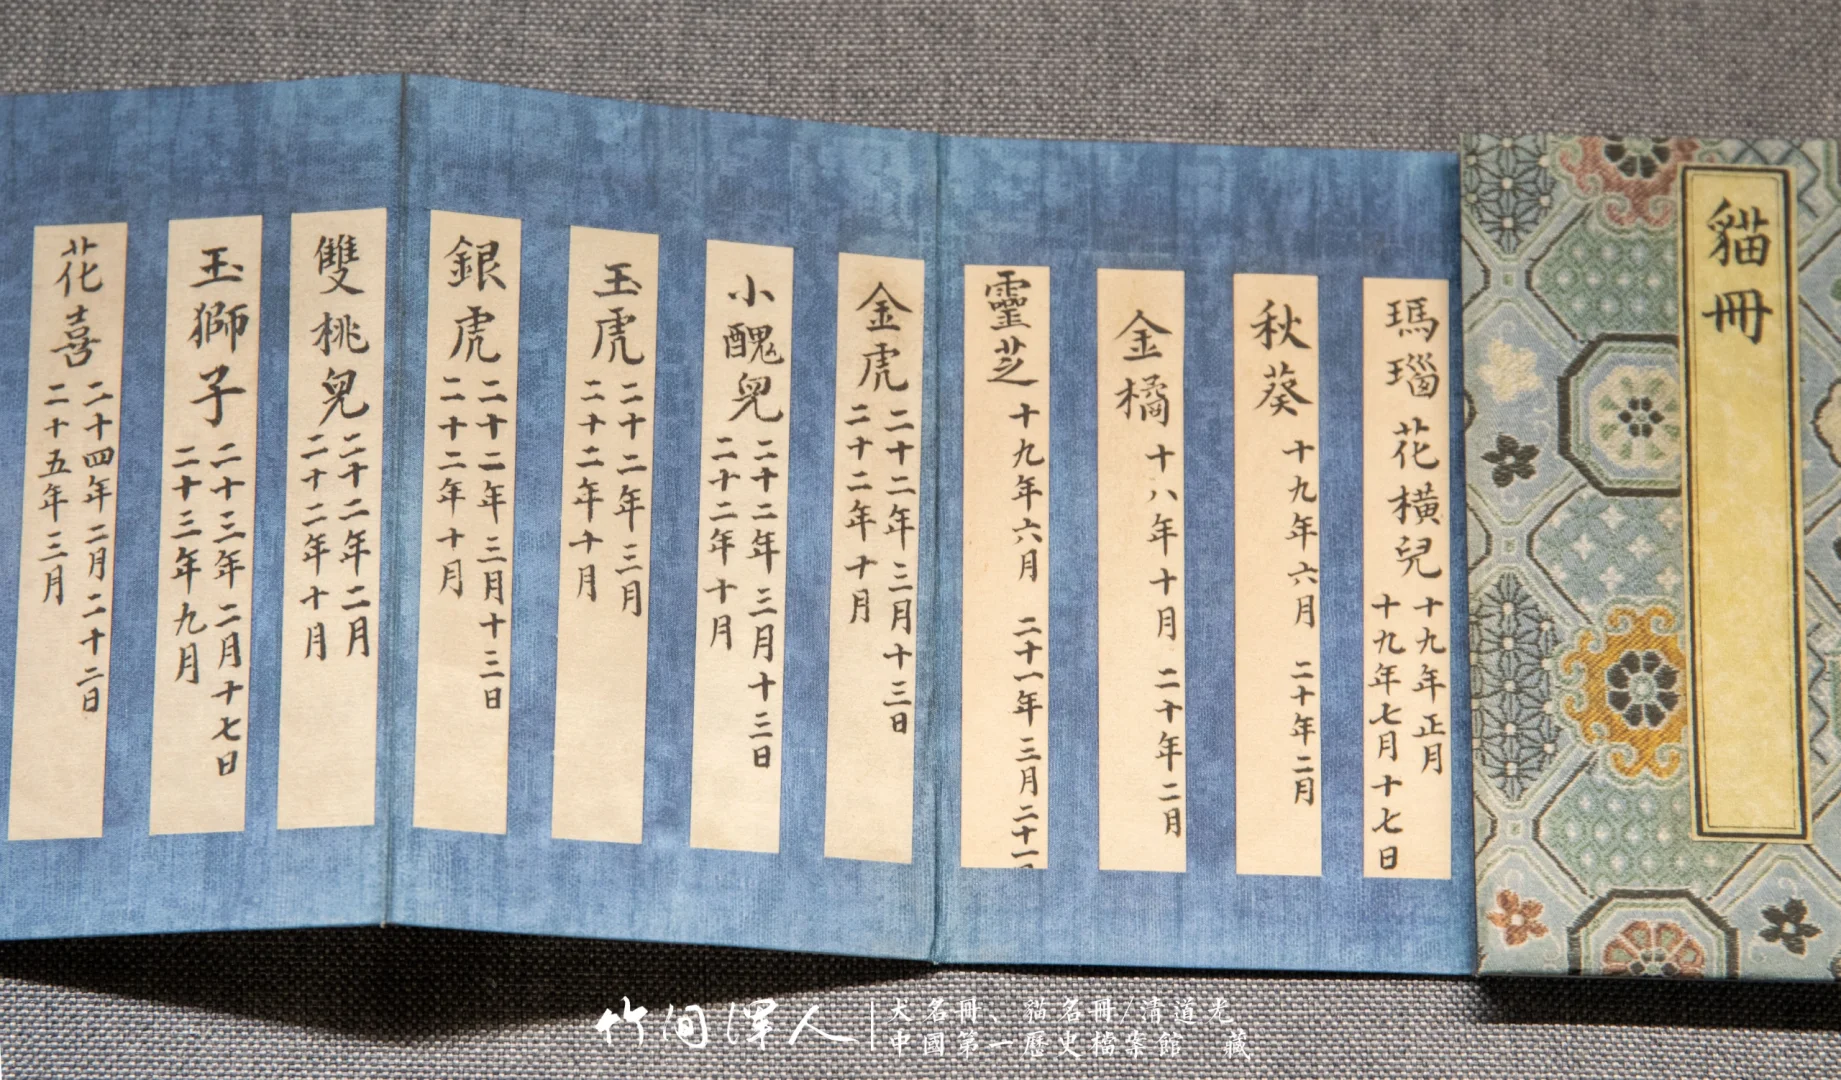 貓冊
瑪瑙花橫兒
十九年正月
十九年七月十七日
秋葵 十九年六月 二十年二月
金橘 十八年十月 二十年二月
靈芝 十九年六月 二十一年三月二十一日
金虎
二十二年三月十三日
二十二年十月
小醜兒
二十二年三月十三日
二十二年十月
玉虎
二十二年三月
二十二年十月
銀虎
二十二年三月十三日
二十二年十月
雙桃兒
二十二年二月
二十二年十月
玉獅子
二十三年二月十七日
二十三年九月
花喜
二十四年二月二十二日
二十五年三月
竹间澤人
犬名冊、貓名冊/清道光
中國第一歷史檔案館 藏